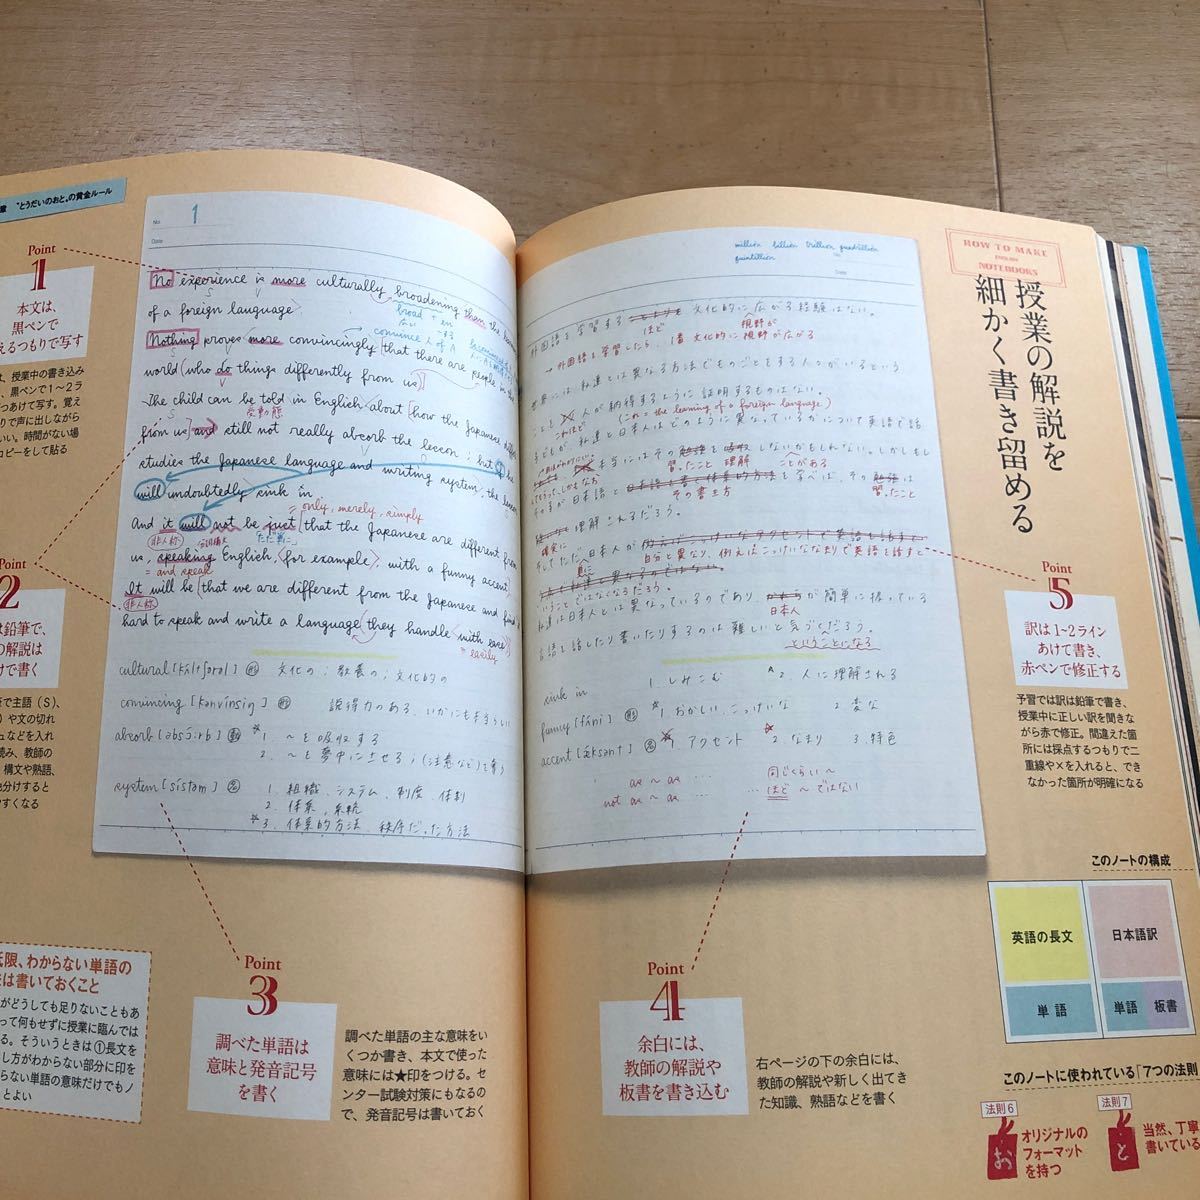 章 "とうだいのおと。"の黄金ルール
Point
1
本文は、
黒ペンで
えるつもりで写す
は、授業中の書き込み
、黒ペンで1〜2ラ
つあけて写す。覚え
りで声に出しながら
いい。時間がない場
コピーをして貼る
Point
2
は鉛筆で、
の解説は
けで書く
筆で主語(S)、
)や文の切れ
ュなどを入れ
読み、教師の
、構文や熟語、
色分けすると
やすくなる
No. 1
Date
No experience is more culturally broadening them the
broad + en
広い する
of a foreign language
S V
convince 人 of A
Nothing proves more convincingly that there are people in the
S V
world (who do things differently from us)
The child can be told in English about how the Japanese
S 受動態
from us and still not really absorb the lesson; but
studies the Japanese language and writing system, the
will undoubtedly sink in.
= only, merely, simply
And it will not be just that the Japanese are different from
非人称
ただ単に
us, speaking English, for example, with a funny accent
= and speak
It will be that we are different from the Japanese and
非人称
hard to speak and write a language they handle with ease
= easily
cultural 形 文化の;教養の;文化的の
convincing 形 説得力のある、いかにも本当らしい
absorb 動 ☆1. 〜を吸収する
2. 〜を夢中にさせる;(注意など)を奪う
system 名 1. 組織、システム、制度、体制
2. 体系、系統
☆3. 体系的方法、秩序だった方法
million billion trillion quadrillion
quintillion
No.
Date
外国語を学習する 文化的に広がる経験はない。
ほど 視野が
→外国語を学習したら、1番文化的に視野が広がる
世界には私達とは異なる方法でものごとをする人々がいるという
ことを 人が納得するように証明するものはない。
これほど (これ = the learning of a foreign language)
子どもが、私達と日本人はどのように異なっているかについて英語で話
本当にはその勉強を吸収しないかもしれない。しかしもし
習ったこと 理解 ことがある
その子が日本語と日本語を書く体系的方法を学べば、その勉強は
その書き方 習ったこと
理解されるだろう。
確実に
そしてただ日本人が
自分と異なり、例えばこっけいななまりで英語を話すと
いうことではなくなるだろう。
私達は日本人とは異なっているのであり、かれらが簡単に操っている
日本人
言語を話したり書いたりするのは難しいと気づくだろう。
ということになる
sink in 1. しみこむ 2. 人に理解される
funny [fʌni] 形 ☆1. おかしい、こっけいな 2. 変な
accent [ǽksənt] 名 1. アクセント ☆2. なまり 3. 特色
as 〜 as … … 同じくらい〜
not as 〜 as … … ほど〜ではない
HOW TO MAKE
ENGLISH
NOTEBOOKS
授業の解説を
細かく書き留める
Point
5
訳は1〜2ライン
あけて書き、
赤ペンで修正する
予習では訳は鉛筆で書き、
授業中に正しい訳を聞きな
がら赤で修正。間違えた箇
所には採点するつもりで二
重線や×を入れると、でき
なかった箇所が明確になる
このノートの構成
英語の長文
日本語訳
単語
単語 板書
このノートに使われている「7つの法則
法則6
お
オリジナルの
フォーマット
を持つ
法則7
と
当然、丁寧
書いている
低限、わからない単語の
は書いておくこと
がどうしても足りないこともあ
って何もせずに授業に臨んでは
る。そういうときは①長文を
し方がわからない部分に印を
らない単語の意味だけでもノ
とよい
Point
3
調べた単語は
意味と発音記号
を書く
調べた単語の主な意味をい
くつか書き、本文で使った
意味には★印をつける。セ
ンター試験対策にもなるの
で、発音記号は書いておく
Point
4
余白には、
教師の解説や
板書を書き込む
右ページの下の余白には、
教師の解説や新しく出てき
た知識、熟語などを書く